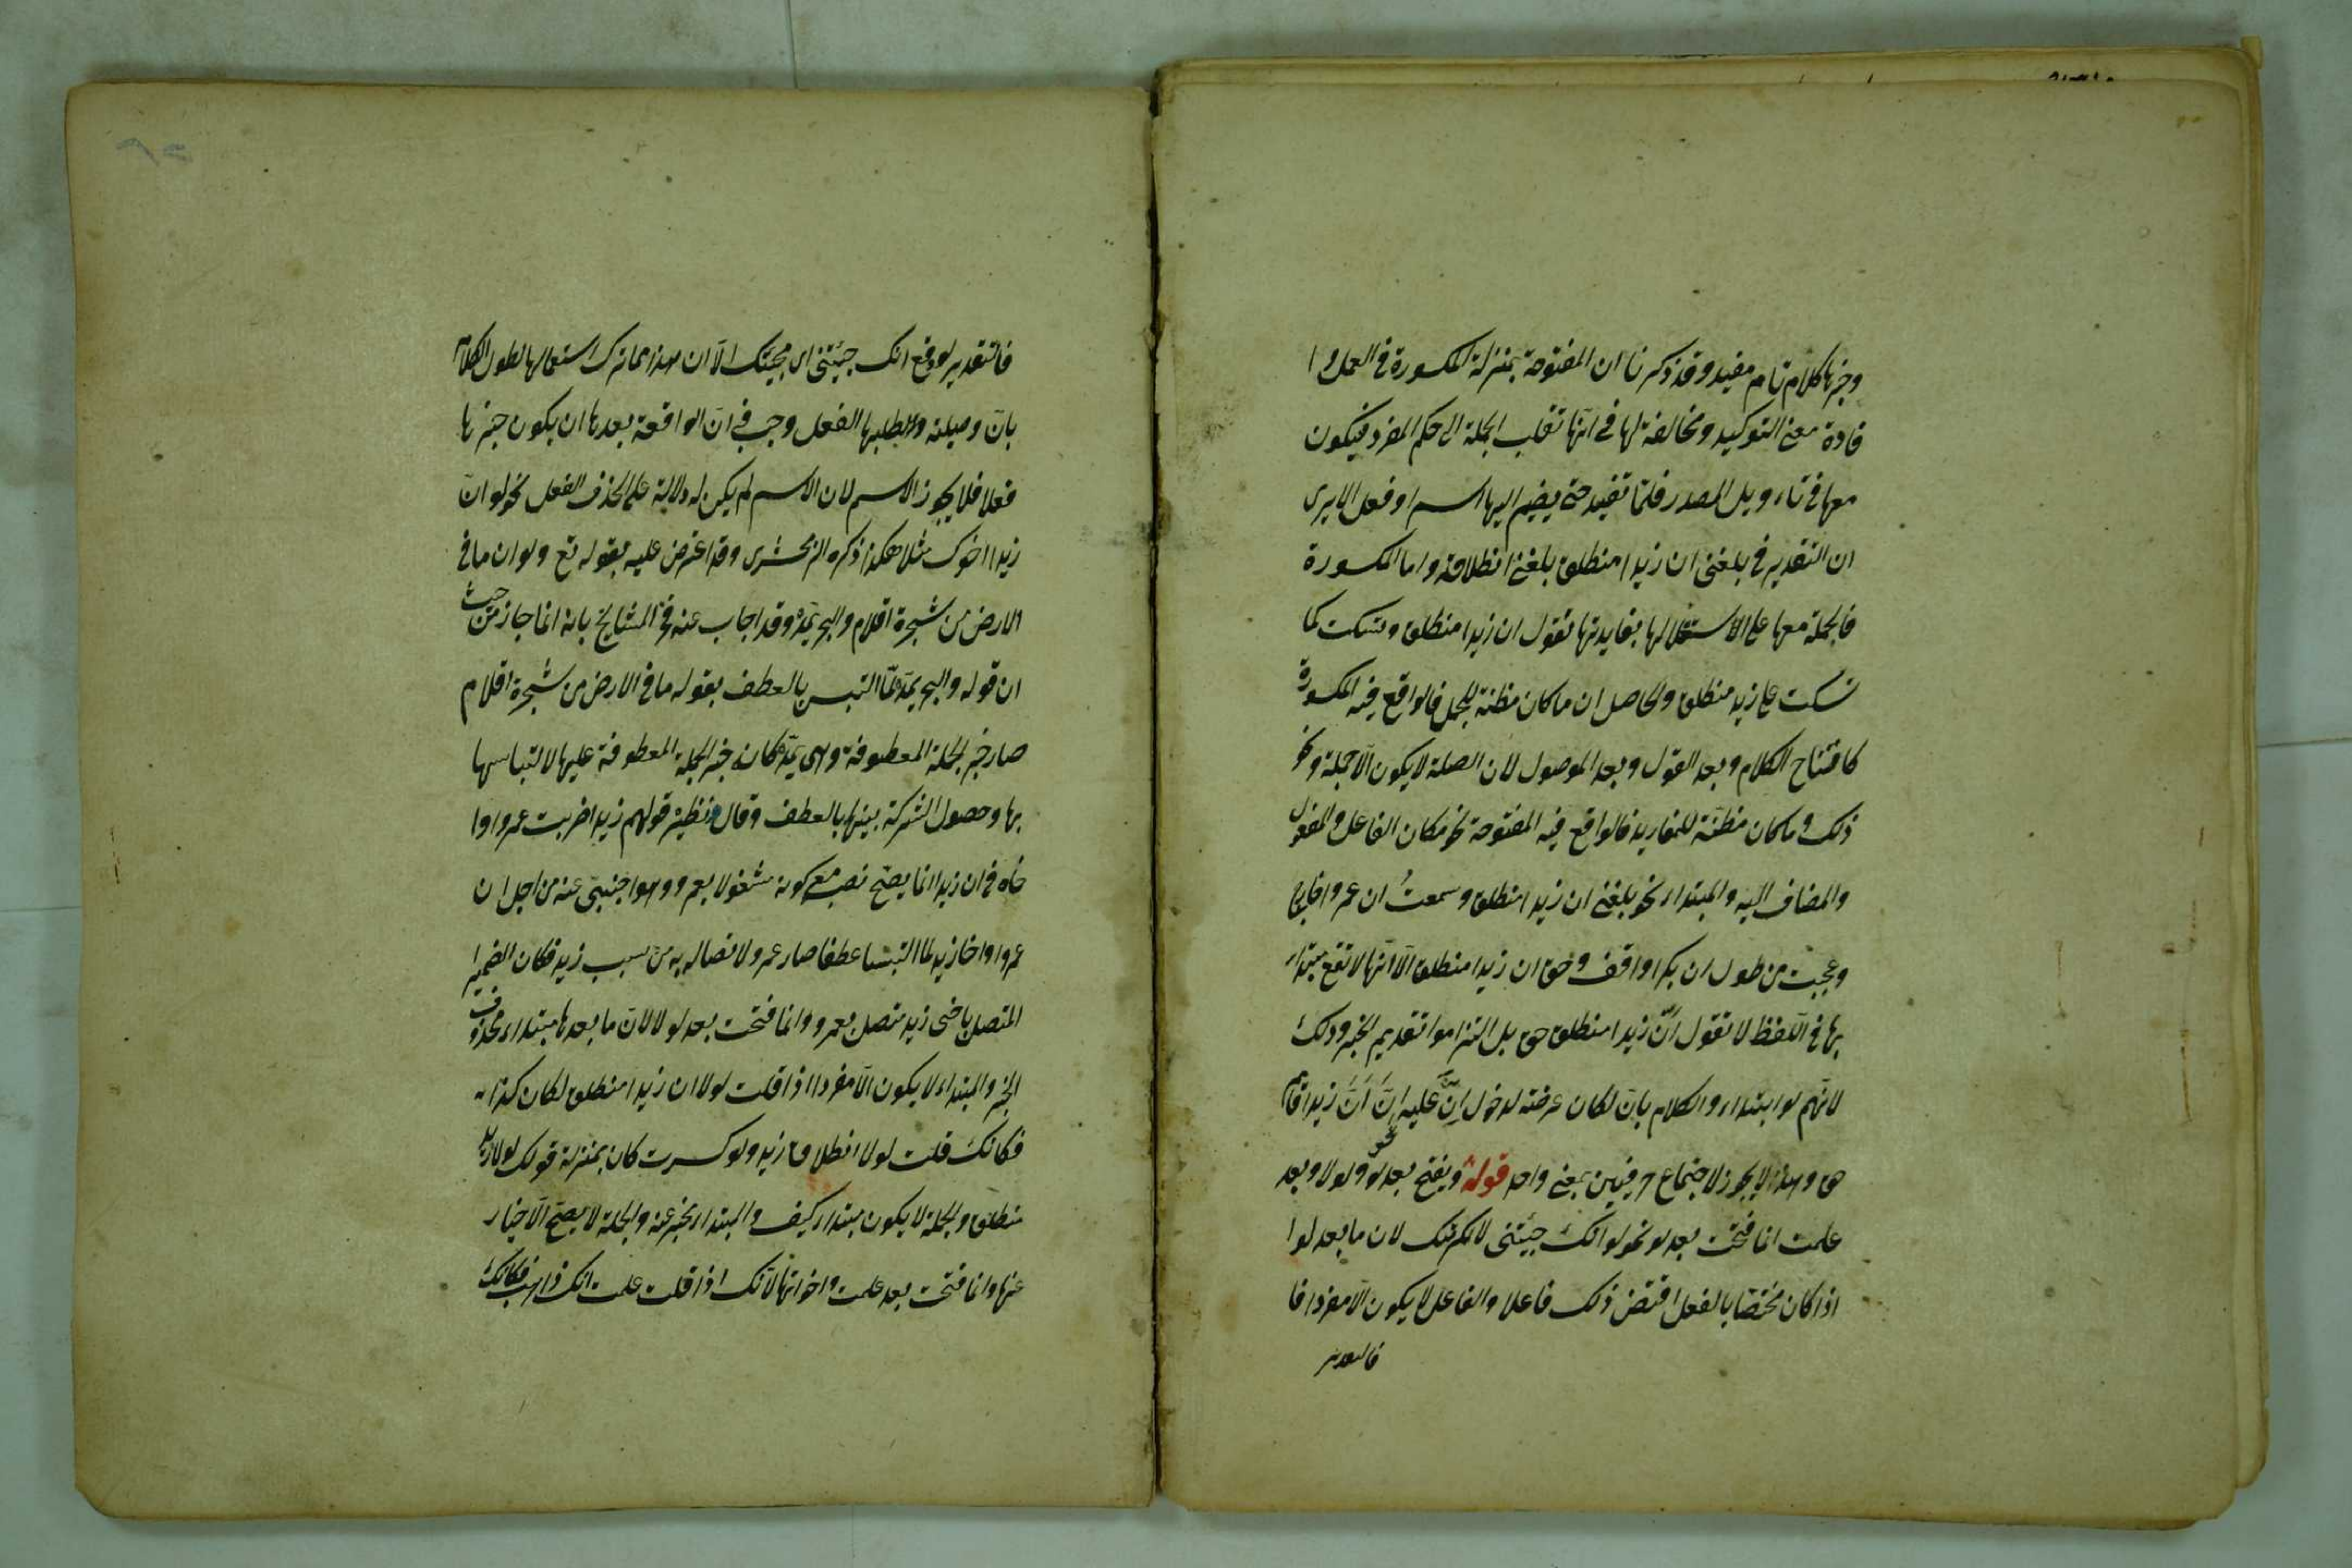 وخبرها كلام تام مفيد وقد ذكرنا ان المفتوحة بمنزلة المكسورة فى العمل وا
فادة معنى التوكيد ومخالفة لها فى انّها تقلب الجملة الى حكم المفرد فيكون
معها فى تاءويل المصدر فلمّا تفيد حتى يضم اليها اسم او فعل الا يرى
ان التقدير فى بلغنى ان زيدا منطلق بلغنى انطلاقه واما المكسورة
فالجملة معها على الاستقلالها بفايدتها تقول ان زيدا منطلق وتسكت كما
تسكت على زيد منطلق والحاصل ان ما كان مظنة للجمل فالواقع فيه المكسورة
كافتتاح الكلام وبعد القول وبعد الموصول لان الصلة لا يكون الّا جملة ونحو
ذلك وما كان مظنّة للمفاريد فالواقع فيه المفتوحة نحو مكان الفاعل والمفعول
والمضاف اليه والمبتداء نحو بلغنى ان زيدا منطلق وسمعتُ ان عمروا خارج
وعجبت من طول ان بكرا واقف وحق ان زيدا منطلق الّا انّها لا تقع مبتداء
بها فى اللّفظ لا تقول انّ زيدا منطلق حق بل التزاموا تقديم الخبر وذلك
لانّهم لو ابتداءوا الكلام بانّ لكان عرضة لدخول اِنّ عليه اِنّ اَنّ زيدا قايم
حق وهذا لا يجوز لاجتماع حرفين بمعنى واحد قوله ويفتح بعد لو ولولا وبعد
علمت انما فتحت بعد لو نحو لو انّك جئتنى لاكرمتك لان ما بعد لو ا
اذا كان مختصّا بالفعل اقتضى ذلك فاعلا والفاعل لا يكون الّا مفردا فا
فالتقدير
فالتقدير لو وقع انك جئتنى اى مجيئك الّا ان هذا مما ترك استعمالها لطول الكلام
بانّ وصلته ولطلبها الفعل وجب فى انّ الواقعة بعدها ان يكون خبرها
فعلا فلا يجوز الاسم لان الاسم لم يكن له دلالة على الحذف الفعل نحو لو انّ
زيدا اخوك مثلا هكذا ذكره الزمخشرى وقد اعترض عليه بقوله تع ولو ان ما فى
الارض من شجرة اقلام والبحر يمدّه وقد اجاب عنه فخر المشايخ بانه انما جاز من حيث
ان قوله والبحر يمدّه لمّا التبس بالعطف بقوله ما فى الارض من شجرة اقلام
صار خبر الجملة المعطوفة وهى يمدّه كانه خبر الجملة المعطوفة عليها لالتباسها
بها وحصول الشركة بينهما بالعطف وقال ونظيره قولهم زيدا ضربت عمروا وا
خاه فى ان زيدا انما يصحّ نصبه مع كونه مشغولا بعمرو وهو اجنبىّ عنه من اجل ان
عمروا واخا زيد لما التبسا عطفا صار عمرو لاتصاله به من سبب زيد فكان الضمير
المتصل باخى زيد متصل بعمرو وانما فتحت بعد لولا لانّ ما بعدها مبتداء محذوف
الخبر والمبتداء لا يكون الّا مفردا اذا قلت لولا ان زيدا منطلق لكان كذا
فكانك قلت لولا انطلاق زيد ولو كسرت كان بمنزلة قولك لولا زيد
منطلق والجملة لا يكون مبتداء كيف والمبتداء مخبر عنه والجملة لا يصحّ الاخبار
عنها وانما فتحت بعد علمت واخواتها لانّك اذا قلت علمت انك ذاهب فكانك